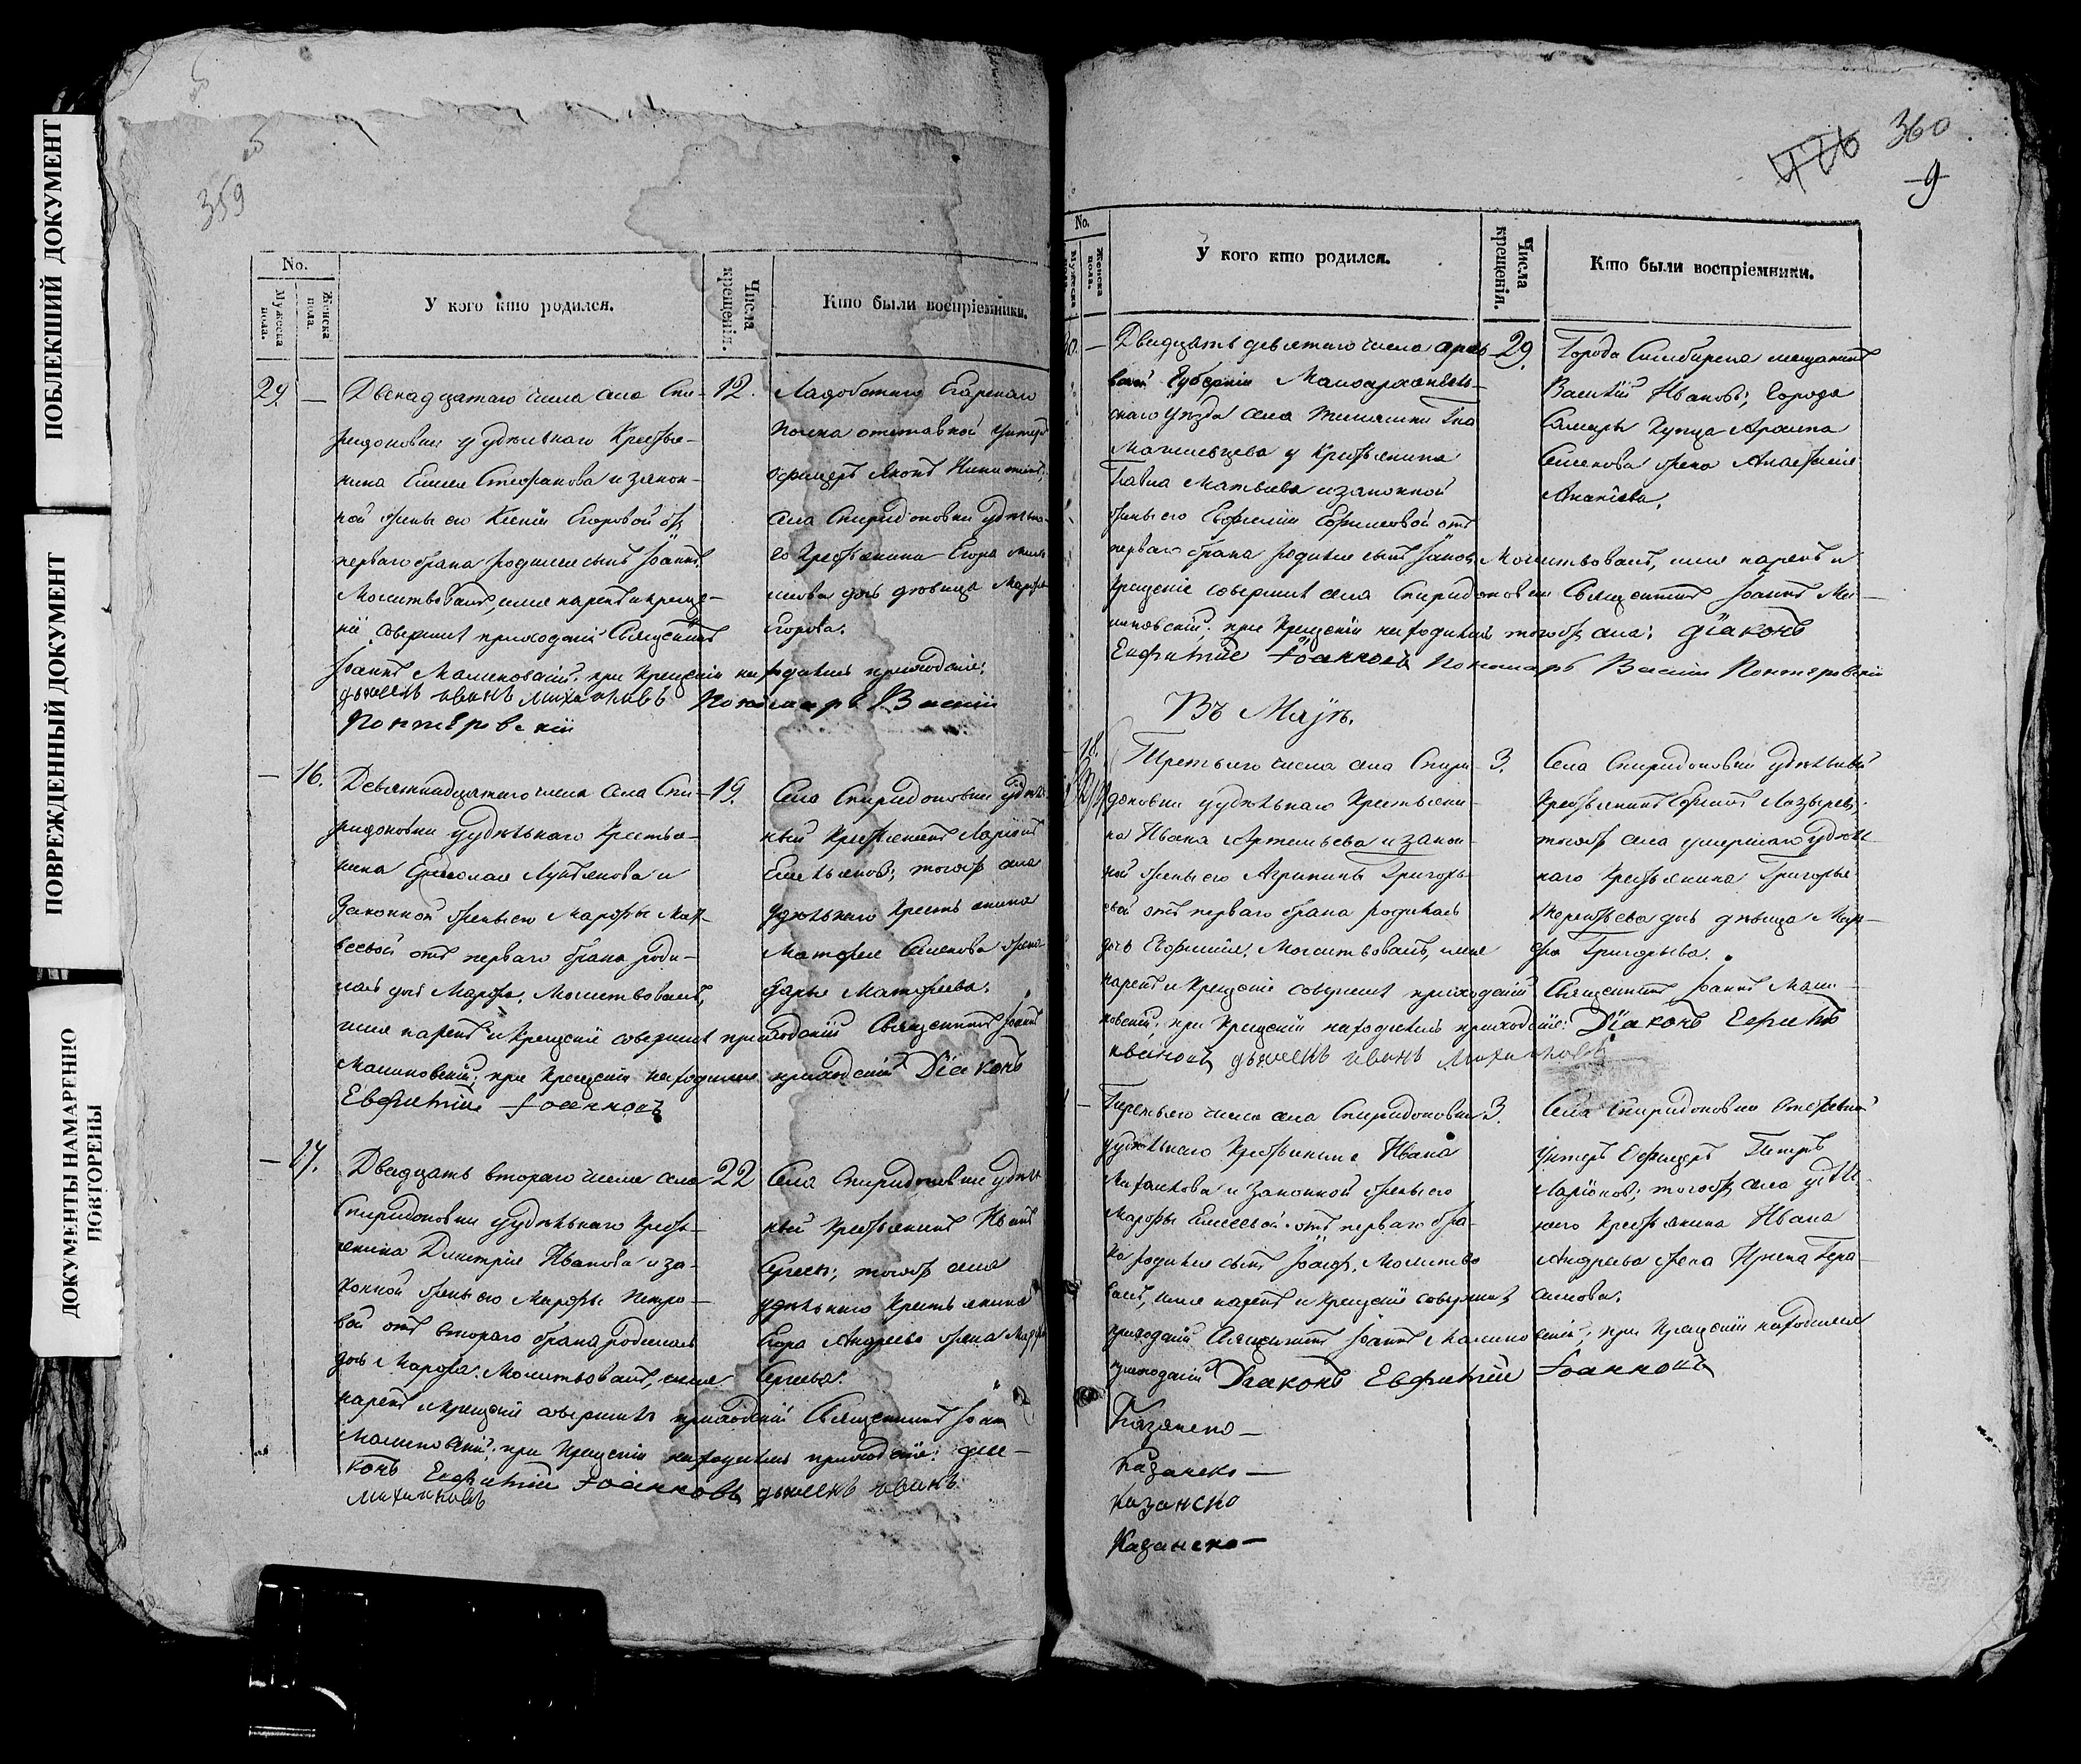 ПОБЛЕКШИЙ ДОКУМЕНТ
ПОВРЕЖДЕННЫЙ ДОКУМЕНТ
ДОКУМЕНТЫ НАМАРЕННО
ПОВТОРЕНЫ
359
No.
Мужеска пола.
Женска пола.
У кого кто родился.
Числа крещенія.
Кто были воспріемники.
29. — Двенадцатаго числа села Спи-
ридоновки удѣльнаго Крестья-
нина Стефанова и закон-
ной жены его Ксеніи Егоровой отъ
перваго брака родился сынъ Іоаннъ.
Молитвовалъ, имя нарекъ и креще-
ніе совершилъ приходскій Священникъ
Іоаннъ Малиновскій; при Крещеніи находились приходскіе:
дьячекъ иванъ михаиловъ Пономарь Василій
12.
полка отставной унтеръ
офицеръ Никитинъ;
села Спиридоновки удѣльна-
го Крестьянина Егора
дочь дѣвица
Егорова.
— 16. Девятнадцатаго числа села Спи-
ридоновки удѣльнаго Крестья-
нина и
законной жены его Марфы Мат-
веевой отъ перваго брака роди-
лась дочь Марфа. Молитвовалъ,
имя нарекъ и Крещеніе совершилъ приходскій Священникъ Іоаннъ
Малиновскій; при Крещеніи находился приходскій Діаконъ
Евфимій Іоанновъ
19.
Села Спиридоновки удѣль-
ный Крестьянинъ Ларіонъ
Емельяновъ; тогожъ села
удѣльнаго Крестьянина
Матфея Семенова жена
Дарья Матфеева.
— 17. Двадцать втораго числа села
Спиридоновки удѣльнаго Кресть-
янина Дмитрія Иванова и за-
конной жены его Марфы Петро-
вой отъ втораго брака родилась
дочь Марфа. Молитвовалъ, имя
нарекъ и крещеніе совершилъ приходскій Священникъ Іоаннъ
Малиновскій; при Крещеніи находились приходскіе: Діа-
конъ Евфимій Іоанновъ дьячекъ иванъ
михаиловъ
22
Села Спиридоновки удѣль-
ный Крестьянинъ Иванъ
Сергеевъ; тогожъ села
удѣльнаго Крестьянина
Егора Андреева жена
Сергеева.
360
9
No.
Мужеска
Женска пола.
У кого кто родился.
Числа крещенія.
Кто были воспріемники.
— Двадцать девятаго числа
Губерніи
скаго уѣзда села
у Крестьянина
Павла Матвѣева и законной
жены его Евфиміи Ефимовой отъ
перваго брака родился сынъ Іаковъ. Молитвовалъ, имя нарекъ и
Крещеніе совершилъ села Спиридоновки Священникъ Іоаннъ Ма-
линовскій; при Крещеніи находились тогожъ села: Діаконъ
Евфимій Іоанновъ Пономарь Василій
29.
Города Симбирска мещанинъ
Василій Ивановъ; Города
Самары Купца
Семенова жена Анастасія
Ананіева.
Въ Маіѣ.
18.
Третьяго числа села Спири-
доновки удѣльнаго Крестьяни-
на Ивана Артемьева и закон-
ной жены его Агрипины Григорь-
евой отъ перваго брака родилась
дочь Евфимія. Молитвовалъ, имя
нарекъ и Крещеніе совершилъ приходскій Священникъ Іоаннъ Мали-
новскій; при Крещеніи находились приходскіе: Діаконъ Евфимій
Іоанновъ дьячекъ иванъ михаиловъ
3.
Села Спиридоновки удѣльный
Крестьянинъ
тогожъ села умершаго удѣль-
наго Крестьянина Григорья
Терентьева дочь дѣвица Мар-
фа Григорьева.
— Третьяго числа села Спиридоновки
удѣльнаго Крестьянина Ивана
и законной жены его
Марфы Елисеевой отъ перваго бра-
ка родился сынъ Іосифъ. Молитво-
валъ, имя нарекъ и Крещеніе совершилъ
приходскій Священникъ Іоаннъ Малиновскій; при Крещеніи находился
приходскій Діаконъ Евфимій Іоанновъ
3.
Села Спиридоновки Отставной
Унтеръ Офицеръ Петръ
Ларіоновъ; тогожъ села удѣль-
наго Крестьянина Ивана
Андреева жена Ирина Гера-
симова.
Казанско —
Казанско —
Казанско
Казанско —